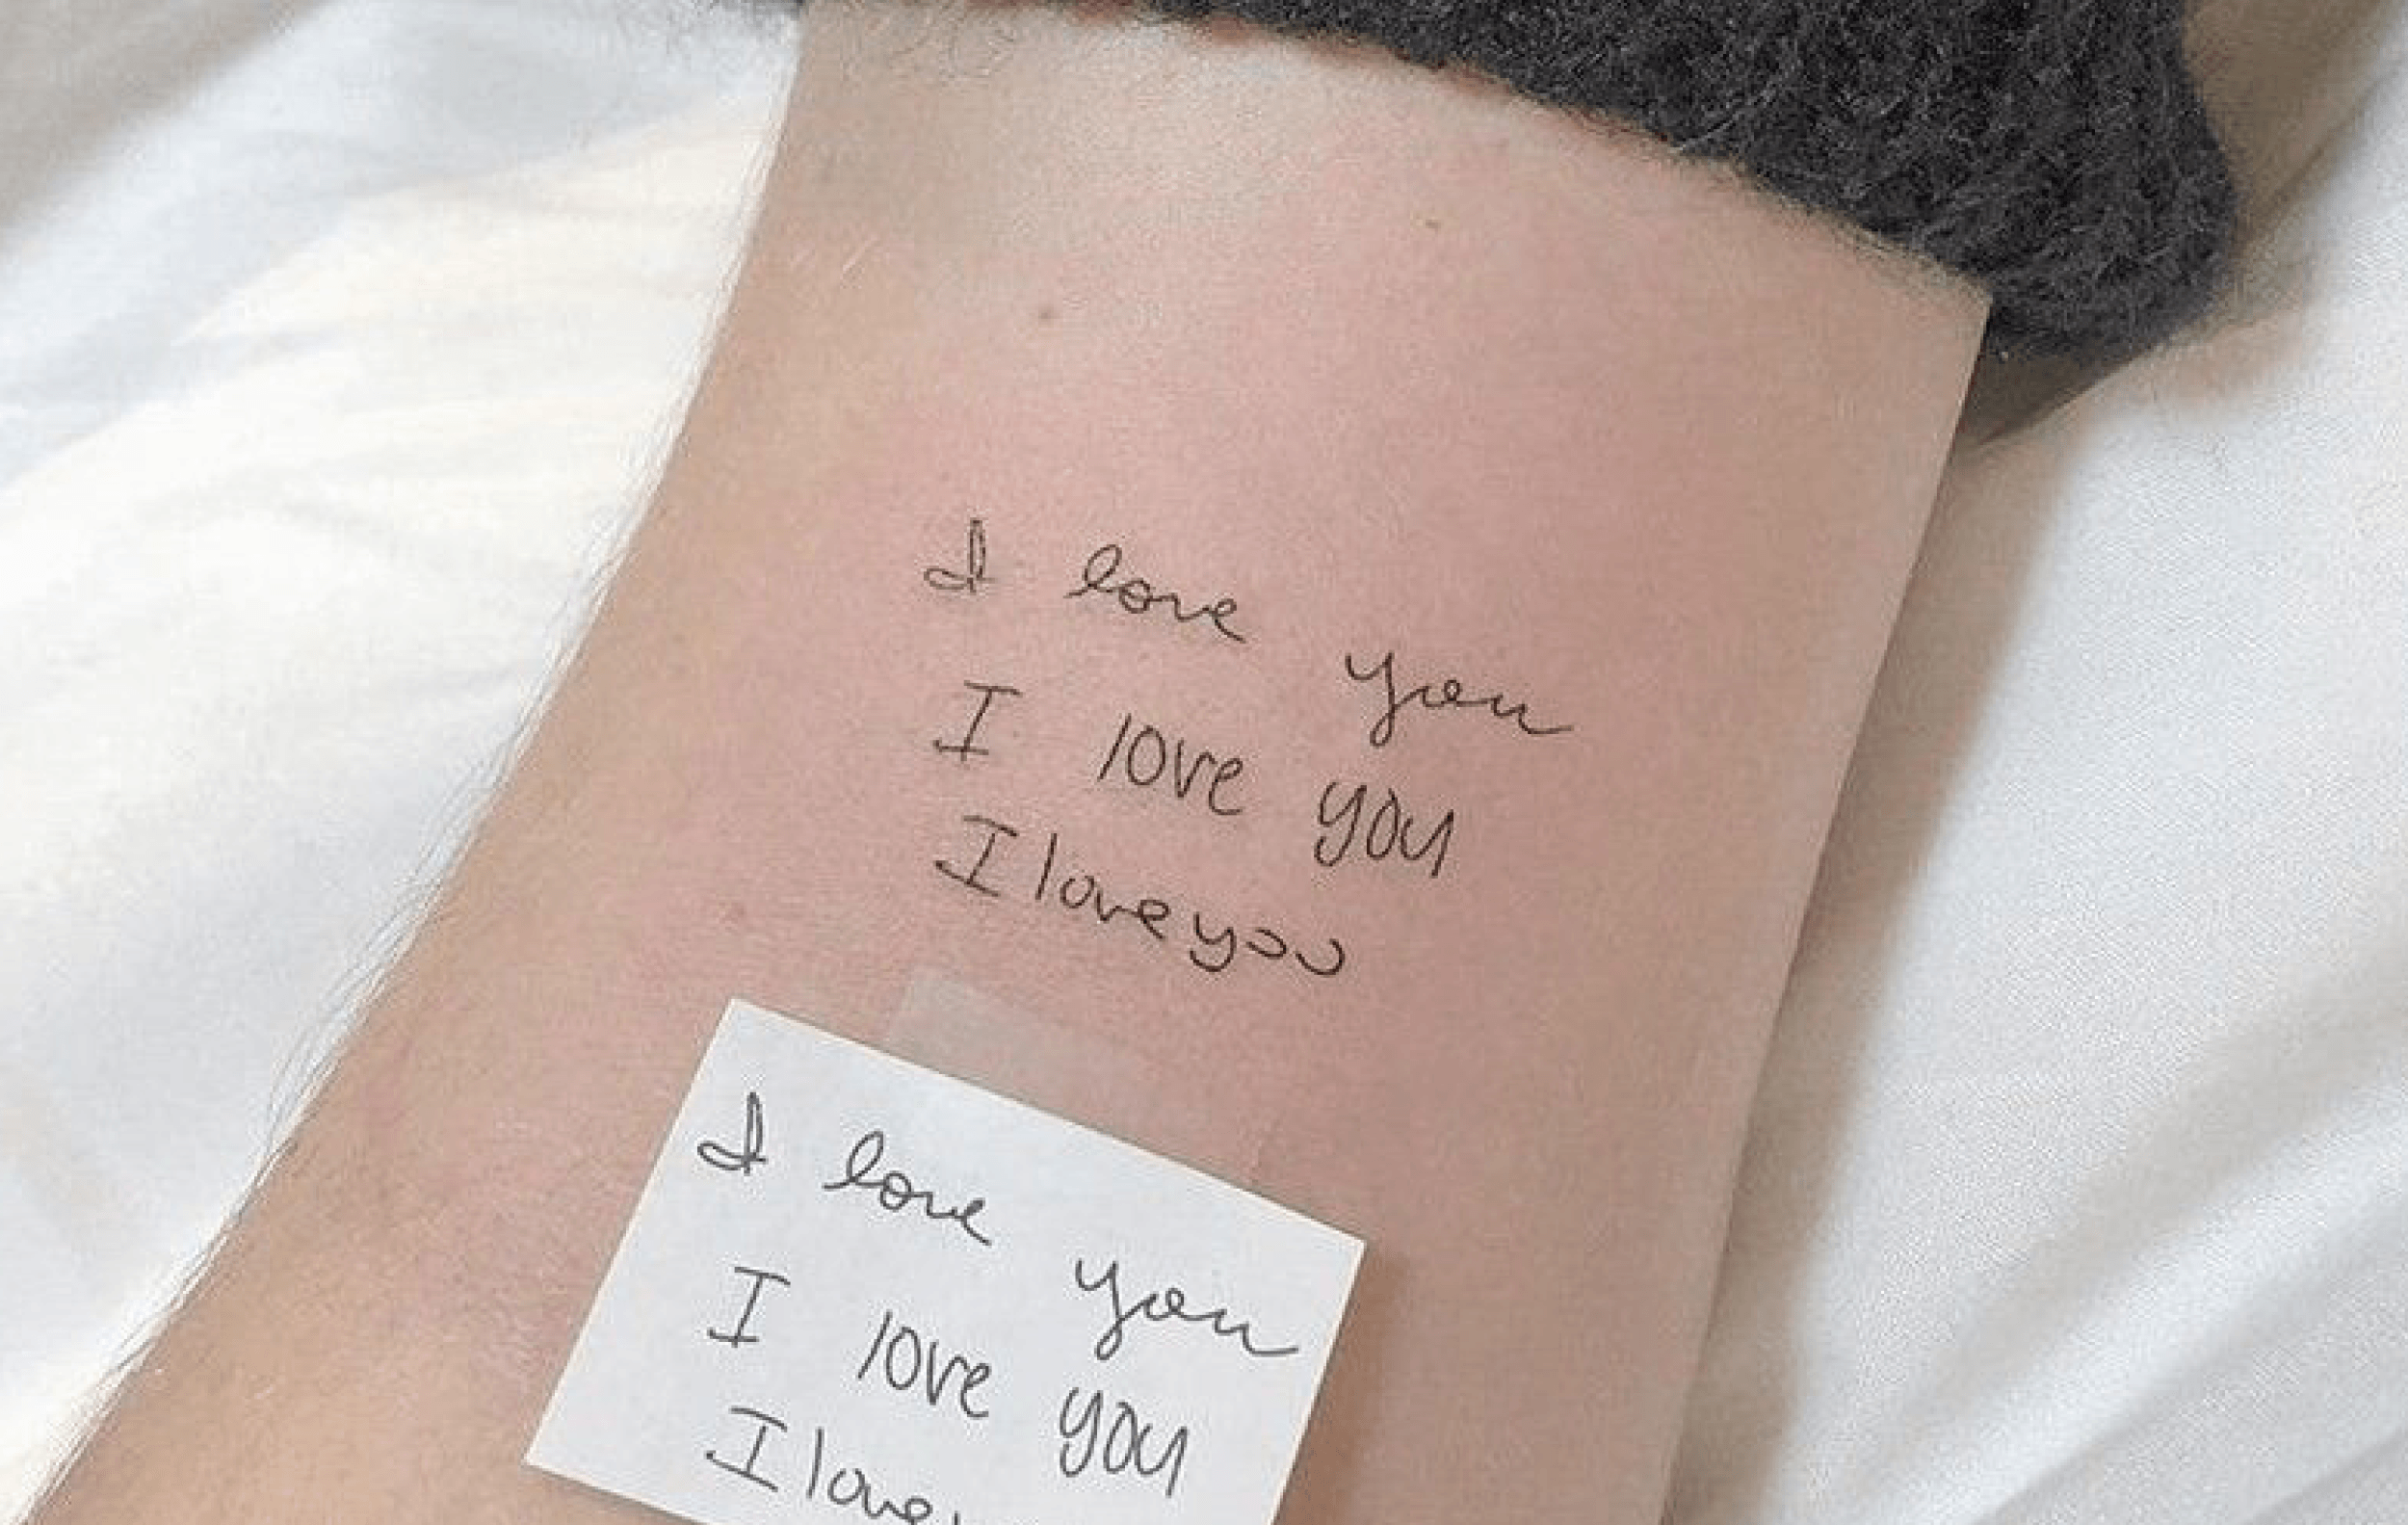 I love you
I love you
I love you
I love you
I love you
I love